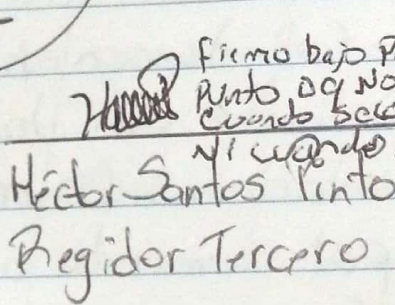 firmo bajo P
Punto
cuando
Ni cuando
Héctor Santos Pinto
Regidor Tercero